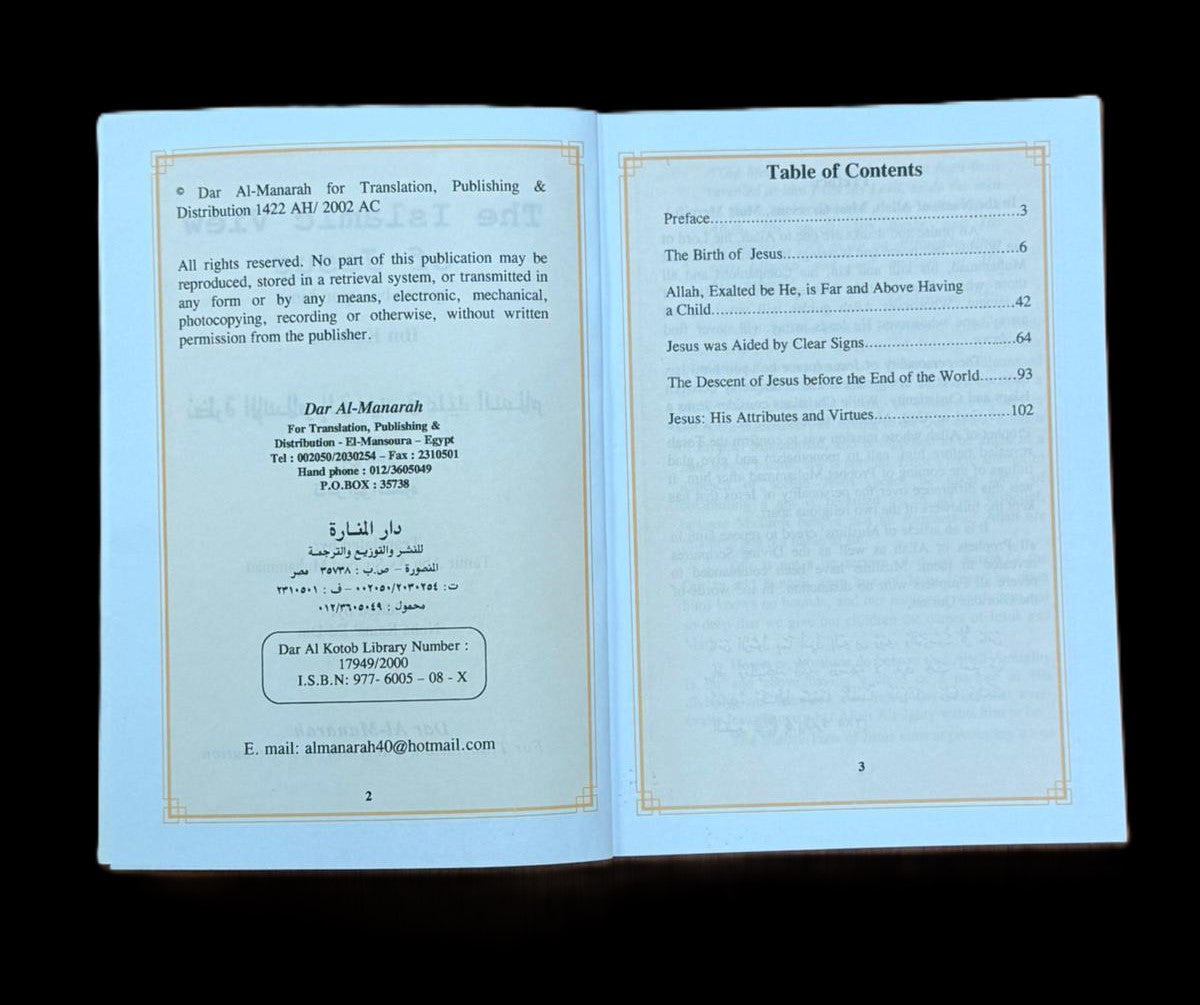 © Dar Al-Manarah for Translation, Publishing &
Distribution 1422 AH/ 2002 AC
All rights reserved. No part of this publication may be
reproduced, stored in a retrieval system, or transmitted in
any form or by any means, electronic, mechanical,
photocopying, recording or otherwise, without written
permission from the publisher.
Dar Al-Manarah
For Translation, Publishing &
Distribution - El-Mansoura – Egypt
Tel : 002050/2030254 – Fax : 2310501
Hand phone : 012/3605049
P.O.BOX : 35738
دار المنارة
للنشر والتوزيع والترجمة
المنصورة – ص.ب : ٣٥٧٣٨ مصر
ت: ٠٠٢٠٥٠/٢٠٣٠٢٥٤ – ف : ٢٣١٠٥٠١
محمول : ٠١٢/٣٦٠٥٠٤٩
Dar Al Kotob Library Number :
17949/2000
I.S.B.N: 977- 6005 – 08 - X
E. mail: almanarah40@hotmail.com
2
Table of Contents
Preface..........................................................................3
The Birth of Jesus........................................................6
Allah, Exalted be He, is Far and Above Having
a Child.........................................................................42
Jesus was Aided by Clear Signs....................................64
The Descent of Jesus before the End of the World........93
Jesus: His Attributes and Virtues.................................102
3